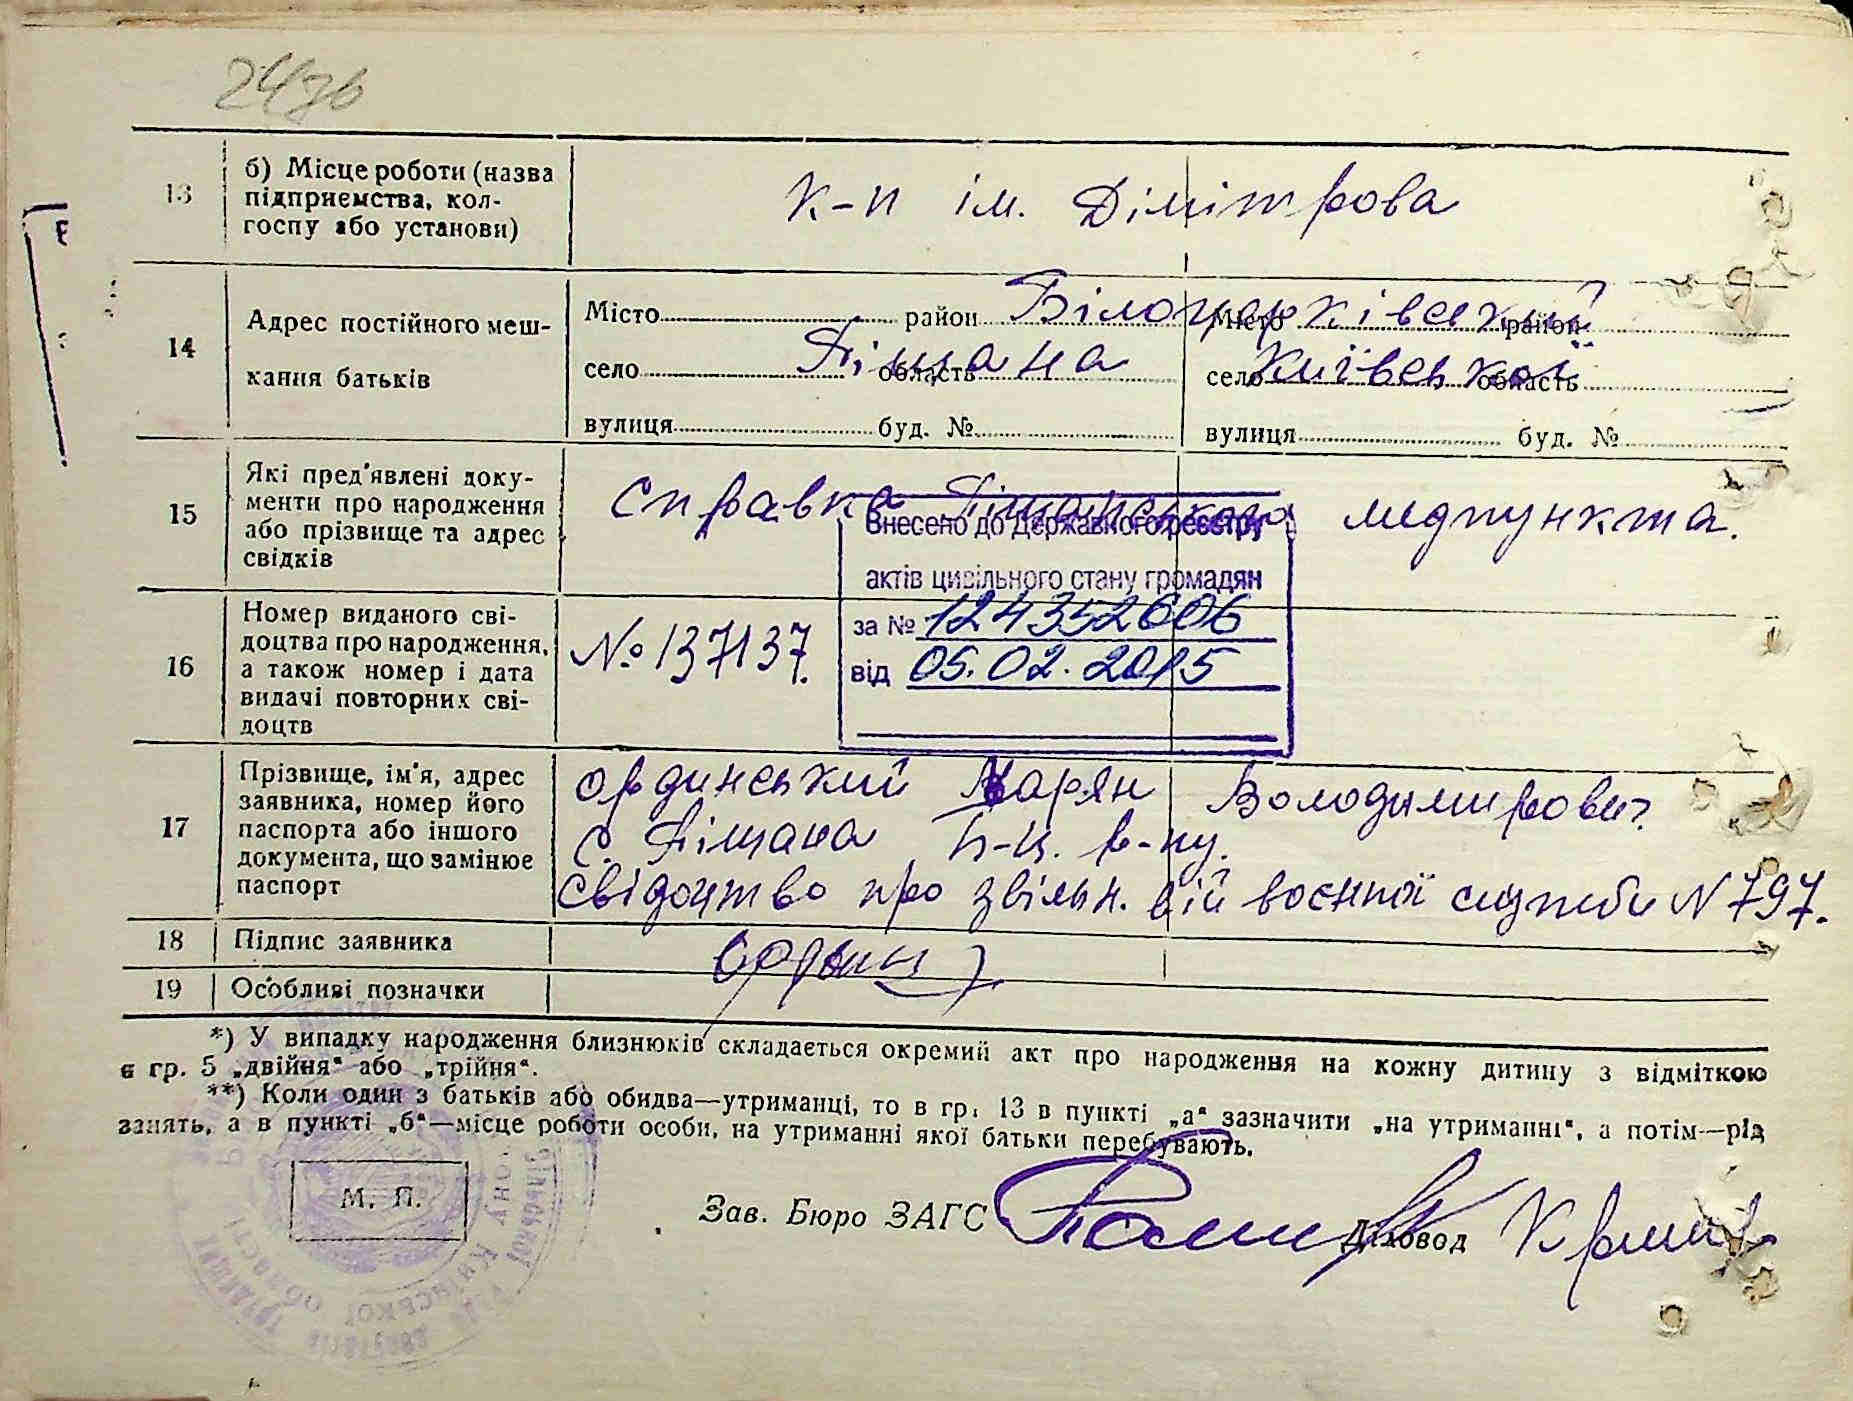 247в
13
б) Місце роботи (назва
підприємства, кол-
госпу або установи)
к-п ім. Дімітрова
14
Адрес постійного меш-
кання батьків
Місто район Білоцерківський Місто район
село Піщана область село Київської область
вулиця буд. № вулиця буд. №
15
Які пред'явлені доку-
менти про народження
або прізвище та адрес
свідків
Справка Піщанського медпункта.
Внесено до Державного реєстру
актів цивільного стану громадян
за № 124352606
від 05.02.2015
16
Номер виданого сві-
доцтва про народження,
а також номер і дата
видачі повторних сві-
доцтв
№ 137137.
17
Прізвище, ім'я, адрес
заявника, номер його
паспорта або іншого
документа, що замінює
паспорт
Ординський Марян Володимирович
с. Піщана Б-Ц. р-ну.
Свідоцтво про звільн. від воєнної служби N 797.
18 Підпис заявника
19 Особливі позначки
*) У випадку народження близнюків складається окремий акт про народження на кожну дитину з відміткою
в гр. 5 „двійня“ або „трійня“.
**) Коли один з батьків або обидва—утриманці, то в гр. 13 в пункті „а“ зазначити „на утриманні“, а потім—рід
занять, а в пункті „б“—місце роботи особи, на утриманні якої батьки перебувають.
М. П.
Зав. Бюро ЗАГС Діловод